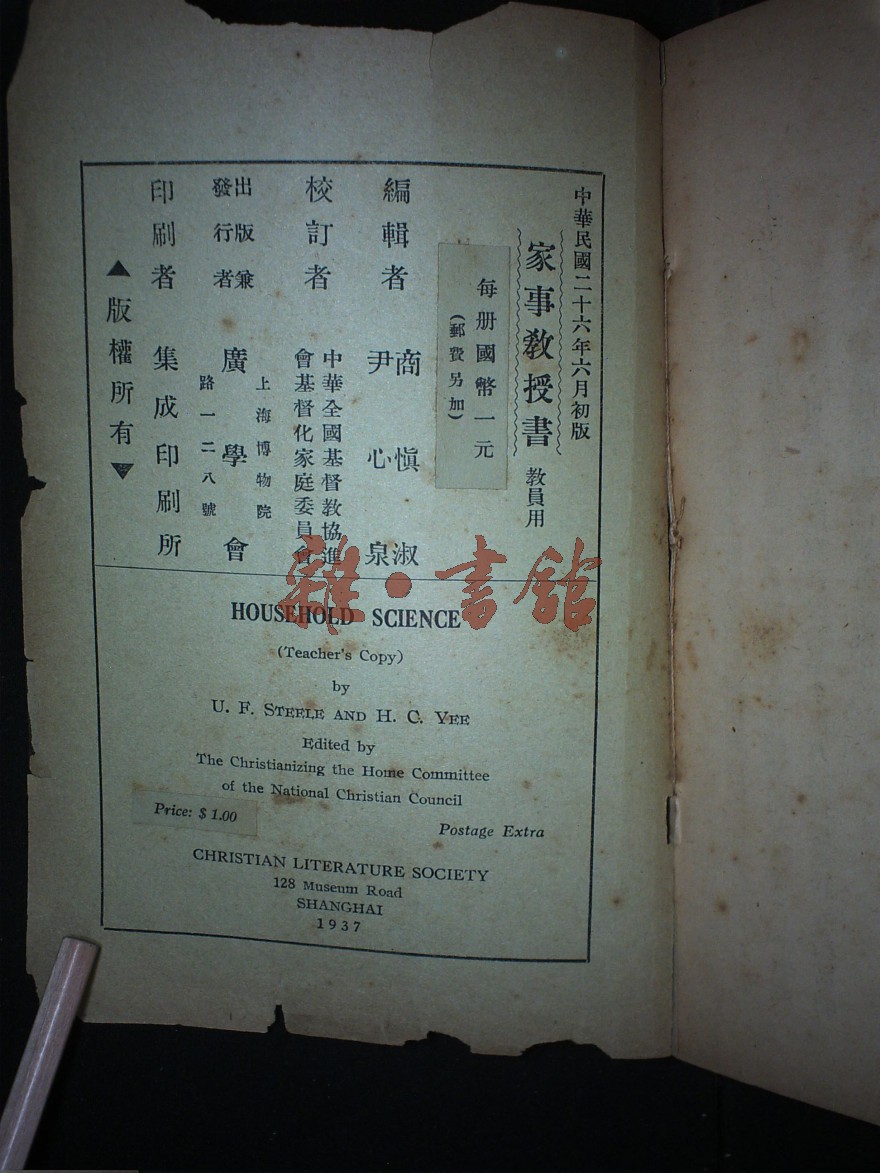 中華民國二十六年六月初版
家事教授書 教員用
每册國幣一元
(郵費另加)
編輯者 商愼淑
尹心泉
校訂者 中華全國基督教協進
會基督化家庭委員會
出版兼
發行者 廣學會
上海博物院
路一二八號
印刷者 集成印刷所
▲版權所有▼
雜·書館
HOUSEHOLD SCIENCE
(Teacher's Copy)
by
U. F. STEELE AND H. C. YEE
Edited by
The Christianizing the Home Committee
of the National Christian Council
Price: $ 1.00
Postage Extra
CHRISTIAN LITERATURE SOCIETY
128 Museum Road
SHANGHAI
1937